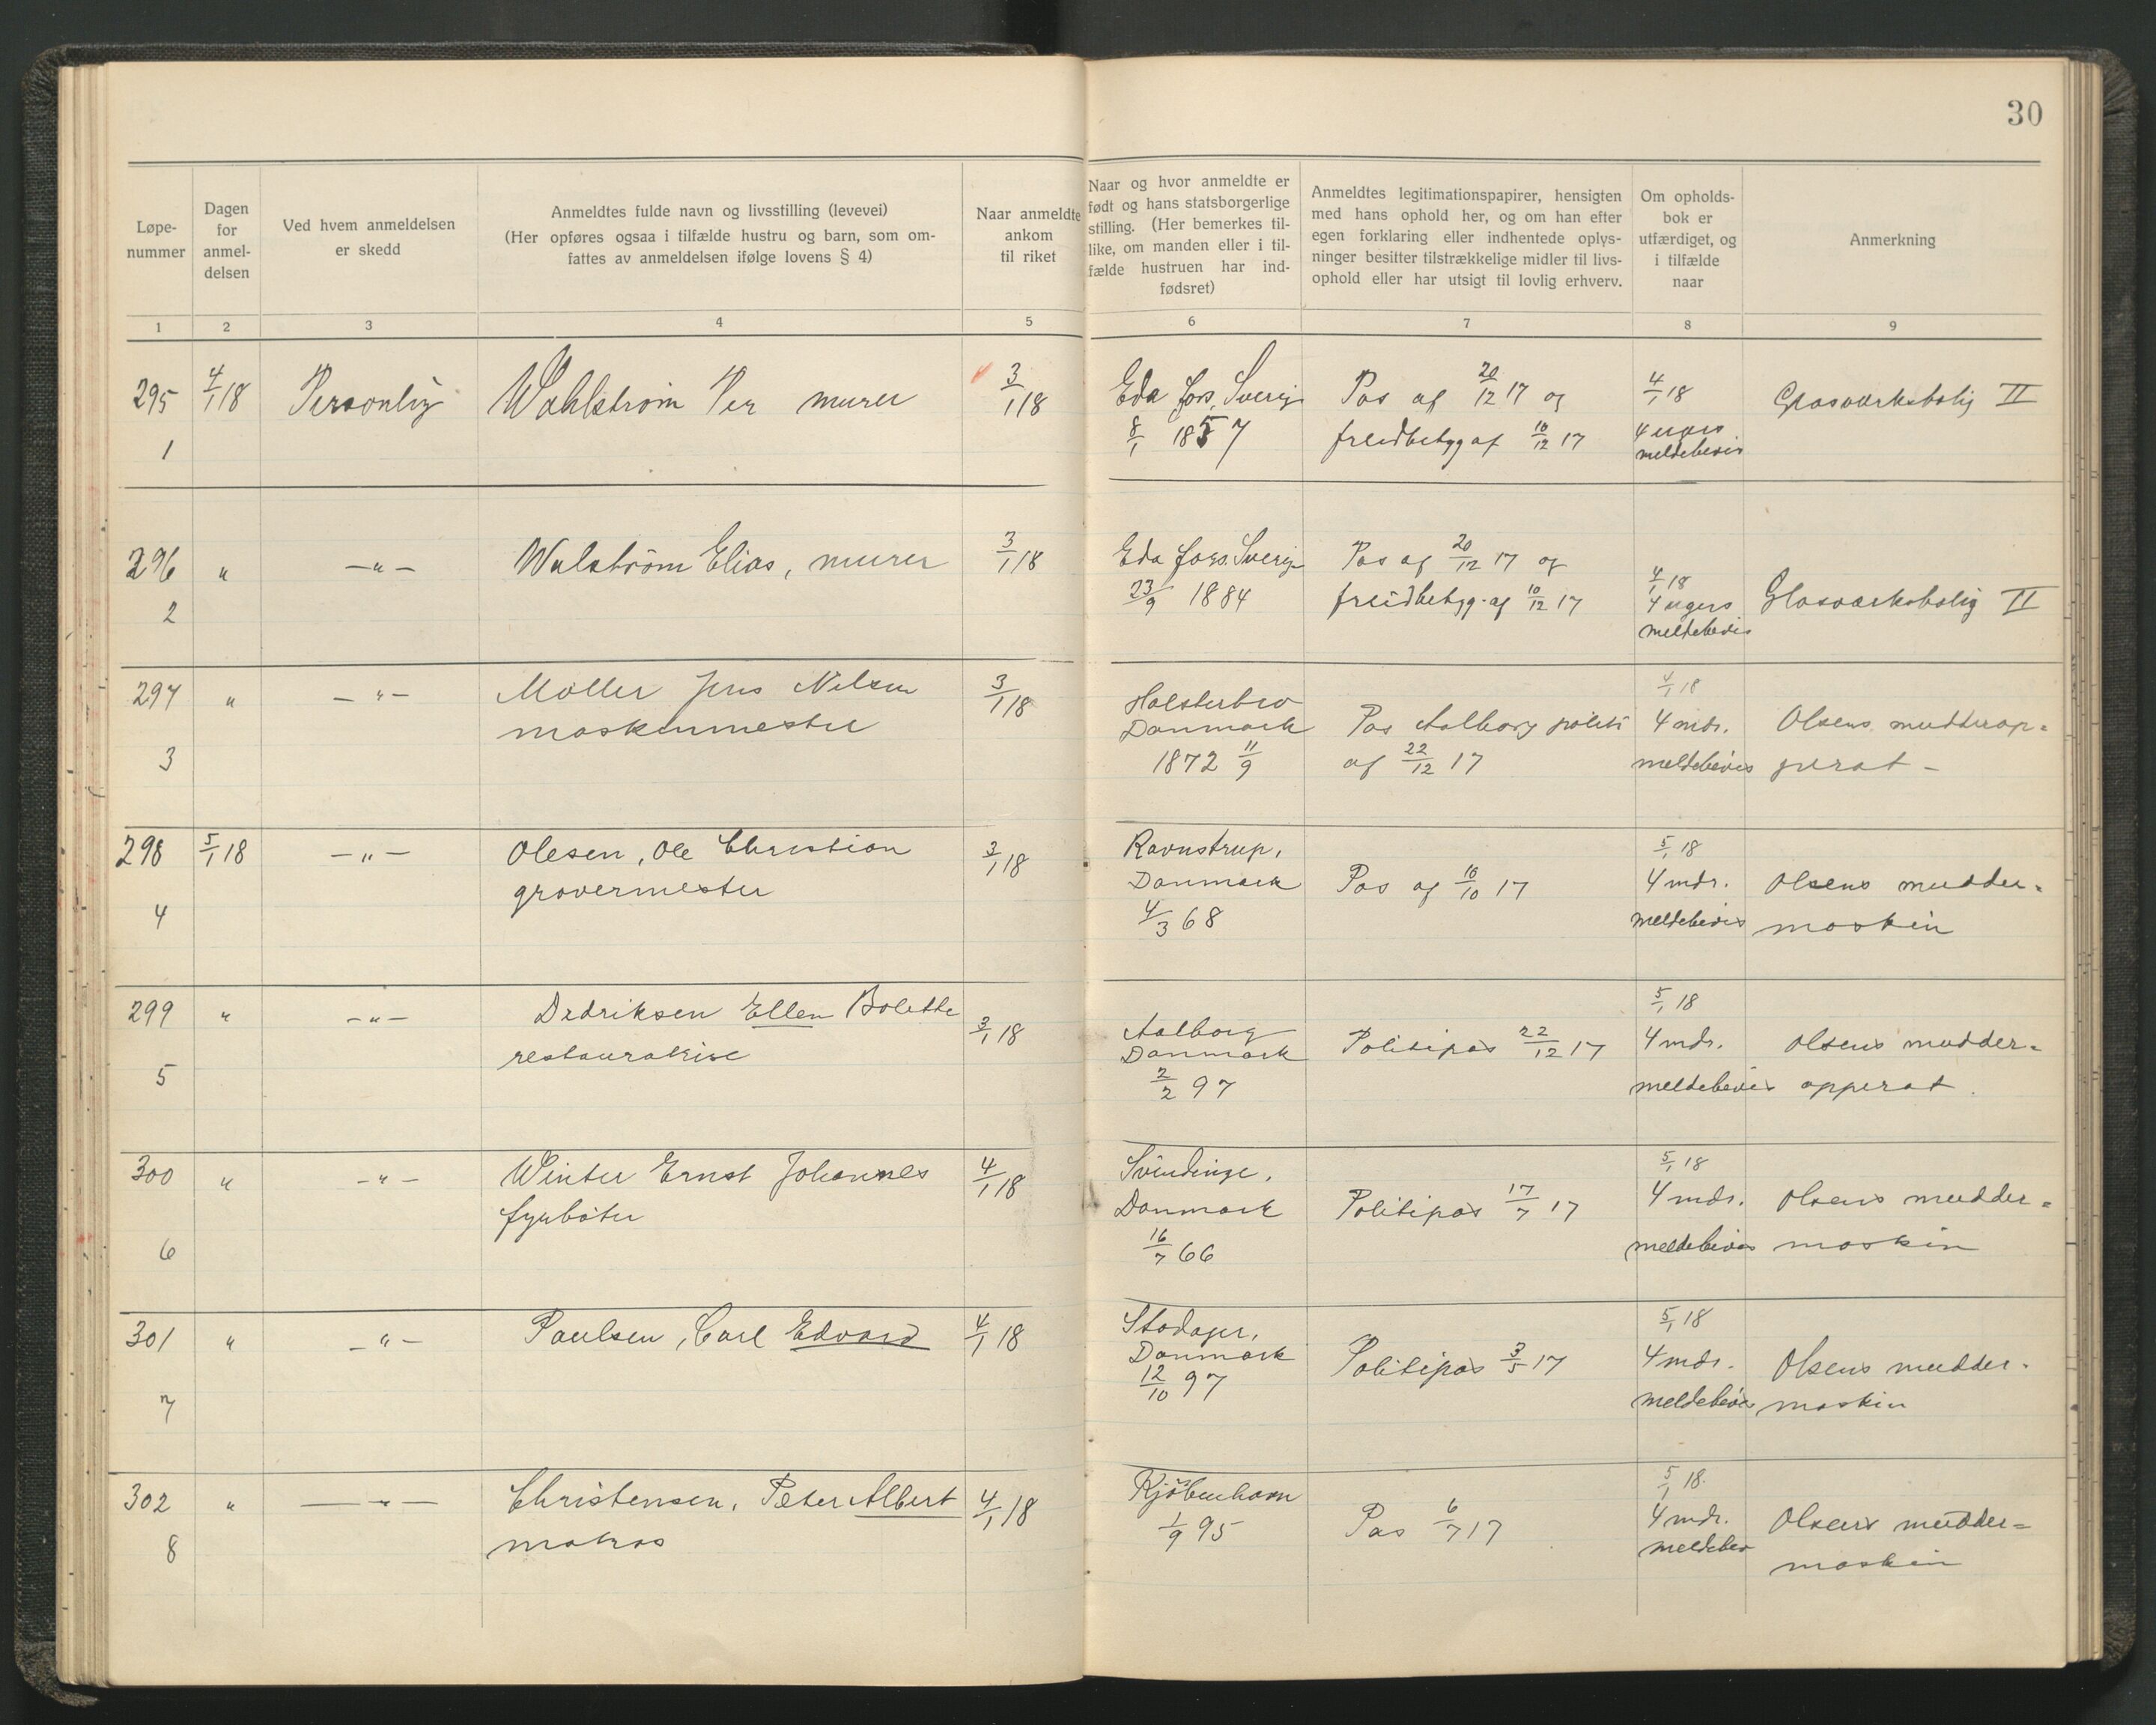 30
Løpe-
nummer
Dagen
for
anmel-
delsen
Ved hvem anmeldelsen
er skedd
Anmeldtes fulde navn og livsstilling (levevei)
(Her opføres ogsaa i tilfælde hustru og barn, som om-
fattes av anmeldelsen ifølge lovens § 4)
Naar anmeldte
ankom
til riket
Naar og hvor anmeldte er
født og hans statsborgerlige
stilling. (Her bemerkes til-
like, om manden eller i til-
fælde hustruen har ind-
fødsret)
Anmeldtes legitimationspapirer, hensigten
med hans ophold her, og om han efter
egen forklaring eller indhentede oplys-
ninger besitter tilstrækkelige midler til livs-
ophold eller har utsigt til lovlig erhverv.
Om opholds-
bok er
utfærdiget, og
i tilfælde
naar
Anmerkning
1 2 3 4 5 6 7 8 9
295 4/1 18 Personlig Wahlström Per murer 3/1 18 Eda fors, Sverig Pas af 20/12 17 og 4/1 18 Glasværksbolig II
1 8/1 1857 freidbetyg af 10/12 17 4 ugers
meldebevis
296 " -"- Walström Elias, murer 3/1 18 Eda fors. Sverig Pas af 20/12 17 og 4/1 18
2 23/9 1884 freidbetyg. af 10/12 17 4 ugers Glasværksbolig II
meldebevis
297 " -"- Möller Jens Nilsen 3/1 18 Holsterbro 4/1 18
maskinmester Danmark Pas Aalborg politi 4 mdr. Olsens mudderap=
3 1872 11/9 af 22/12 17 meldebevis perat -
298 5/1 18 -"- Olesen, Ole Christian 3/1 18 Ravnstrup, 5/1 18
gravermester Danmark Pas af 10/10 17 4 mdr. Olsens mudder=
4 4/3 68 meldebevis maskin
299 " -"- Dedriksen Ellen Bolette 3/1 18 Aalborg 5/1 18
restauratrise Danmark Politipas 22/12 17 4 mdr. Olsens mudder=
5 2/2 97 meldebevis apperat.
300 " -"- Winter Ernst Johannes 4/1 18 Svindinge, 5/1 18
fyrböter Danmark Politipas 17/7 17 4 mdr. Olsens mudder=
6 16/7 66 meldebevis maskin
301 " -"- Paulsen, Carl Edvard 4/1 18 Stodager, 5/1 18
Danmark Politipas 3/5 17 4 mdr. Olsens mudder-
7 12/10 97 meldebevis maskin
302 " -"- Christensen, Peter Albert 4/1 18 Kjöbenhavn 5/1 18.
matros 1/9 95 Pas 6/7 17 4 mdr. Olsens mudder=
8 meldebev maskin